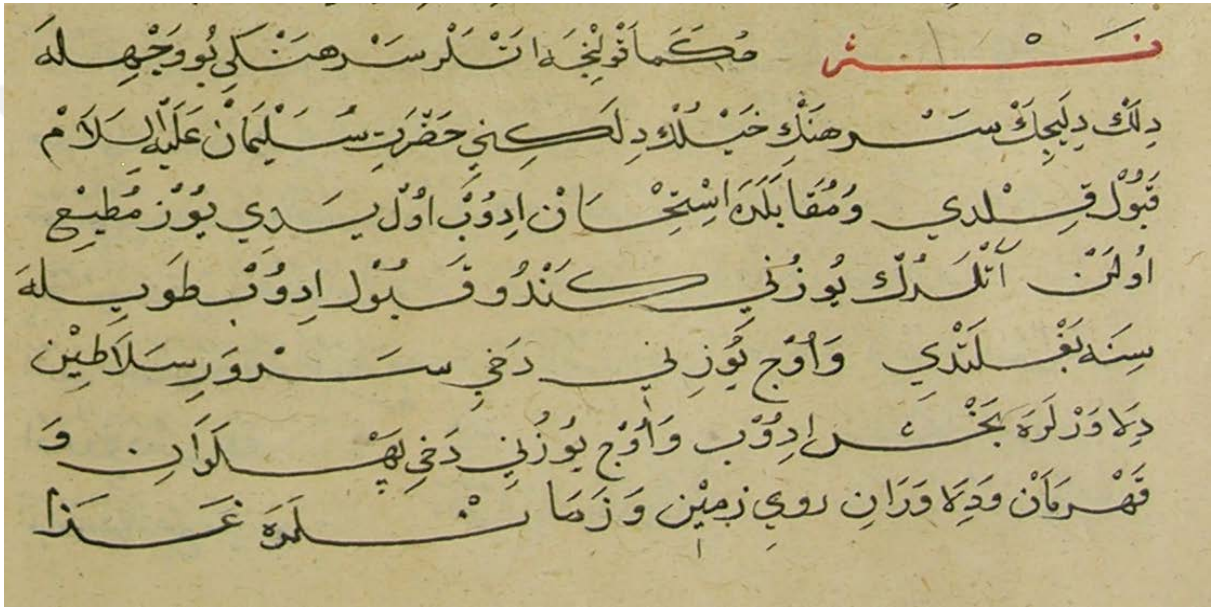 نثر مُكَمَّا قَوْلِنْجَه اتْلَر سَرْهَنْكِي بُو وَجْهِله
دِلَكْ دِلَيِجَكْ سَرْهَنْكِ خَيْلُكْ دِلَكِنِي حَضْرَتِ سُلَيْمَانْ عَلَيْهِ السَّلَامْ
قَبُولْ قِلْدِي وَمُقَابَلَدَه اسْتِحْسَانْ اِدُوبْ اوُلْ يَدِي يُوزْ مُطِيعْ
اوُلَنْ آتْلَرُكْ يُوزُنِي كَنْدُو قَبُولْ اِدُوبْ طَوِيلَه
سِنَه بَغْلَتْدِي وَاُوجْ يُوزِنِي دَخِي سَرْوَرِ سَلَاطِينْ
دِلَاوَرْلَرَه بَخْش اِدُوبْ وَاُوجْ يُوزُنِي دَخِي پَهْلَوَانِ وَ
قَهْرَمَانْ وَدِلَاوَرَانِ رُويِ زَمِينْ وَزَمَانْلَرَه غَزَا